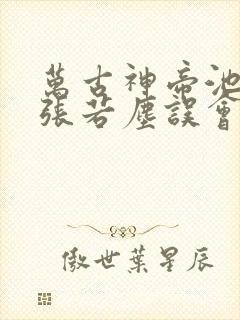 萬古神帝池
張若塵誤會
傲世葉星辰